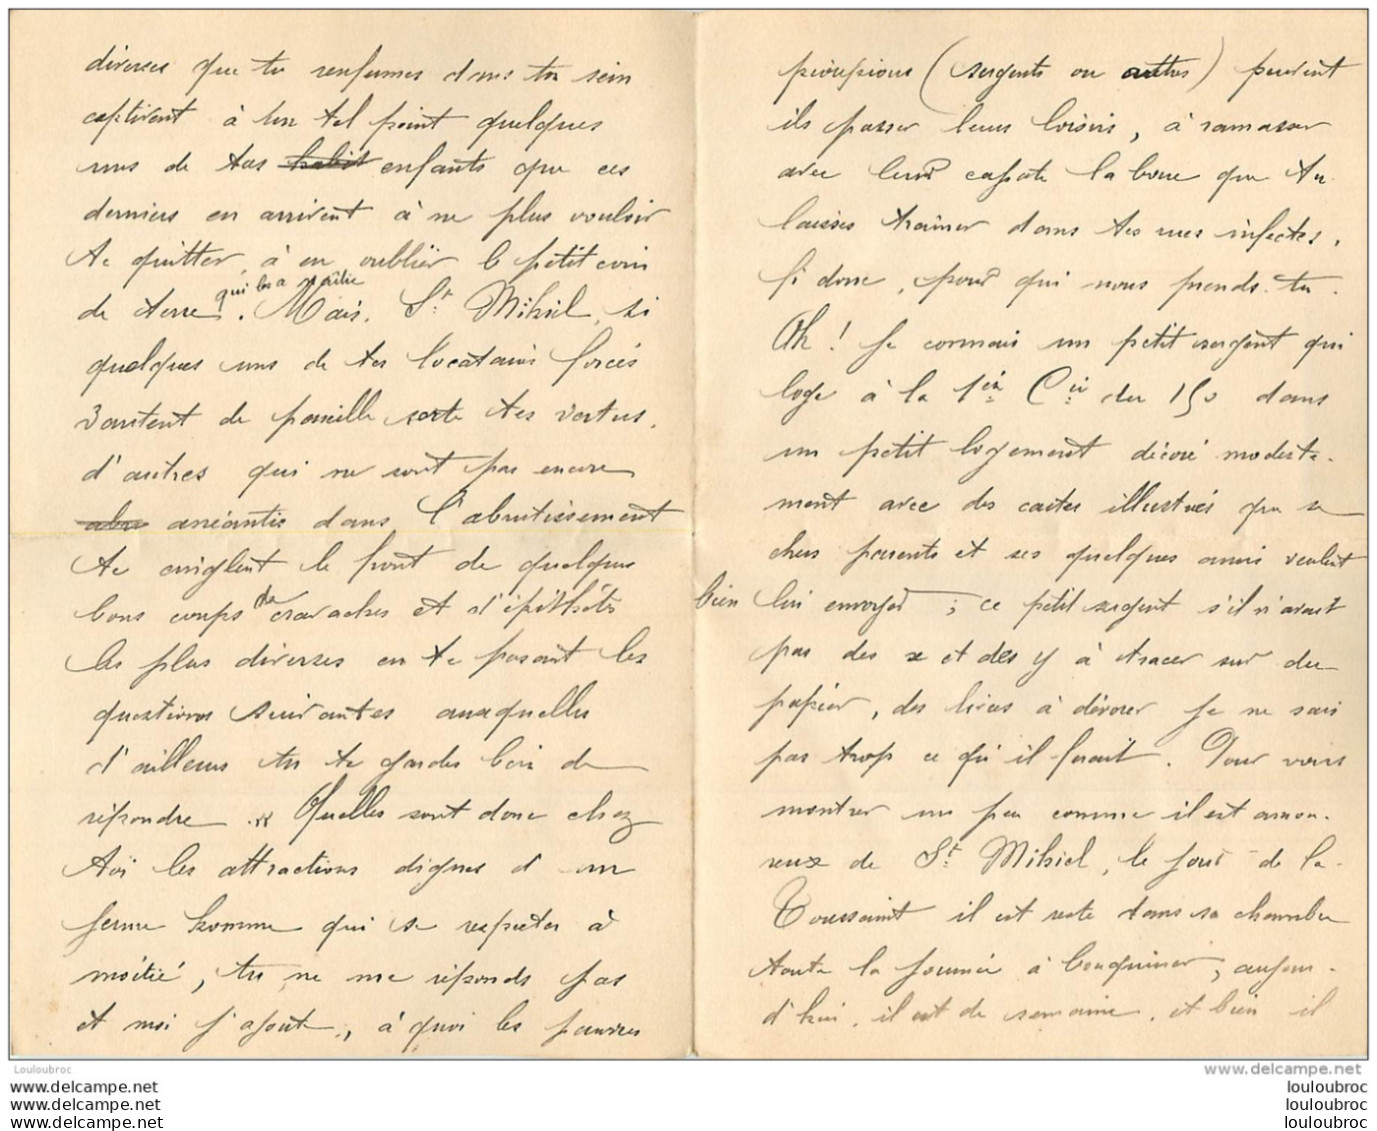 diverses que tu renfermes dans ton sein
captivent à un tel point quelques
uns de tes habit enfants que ces
derniers en arrivent à ne plus vouloir
te quitter, à en oublier le petit coin
de terre qui les a . Mais, St Mihiel, si
quelques uns de tes locataires forcés
vantent de pareille sorte tes vertus,
d'autres qui ne sont pas encore
anéantis dans l'abrutissement
te cinglent le front de quelques
bons coups de cravaches et d'épithètes
les plus diverses en te posant les
questions suivantes auxquelles
d'ailleurs tu te gardes bien de
répondre. « Quelles sont donc chez
toi les attractions dignes d'un
jeune homme qui se respecte à
moitié, tu ne me réponds pas
et moi j'ajoute, à quoi les pauvres
pioupious (sergents ou autres) peuvent
ils passer leurs loisirs, à ramasser
avec leur capote la boue que tu
laisses traîner dans tes rues infectes,
fi donc, pour qui nous prends-tu.
Ah ! Je connais un petit sergent qui
loge à la 1ère Cie du 150 dans
un petit logement décoré modeste-
ment avec des cartes illustrées que ses
chers parents et ses quelques amis veulent
bien lui envoyer ; ce petit sergent s'il n'avait
pas des x et des y à tracer sur du
papier, des livres à dévorer je ne sais
pas trop ce qu'il ferait. Pour vous
montrer un peu comme il est amou-
reux de St Mihiel, le jour de la
Toussaint il est resté dans sa chambre
toute la journée à bouquiner, aujour-
d'hui, il est de semaine, et bien il
Louloubroc
www.delcampe.net
www.delcampe.net
www.delcampe.net
www.delcampe.net
louloubroc
louloubroc
louloubroc